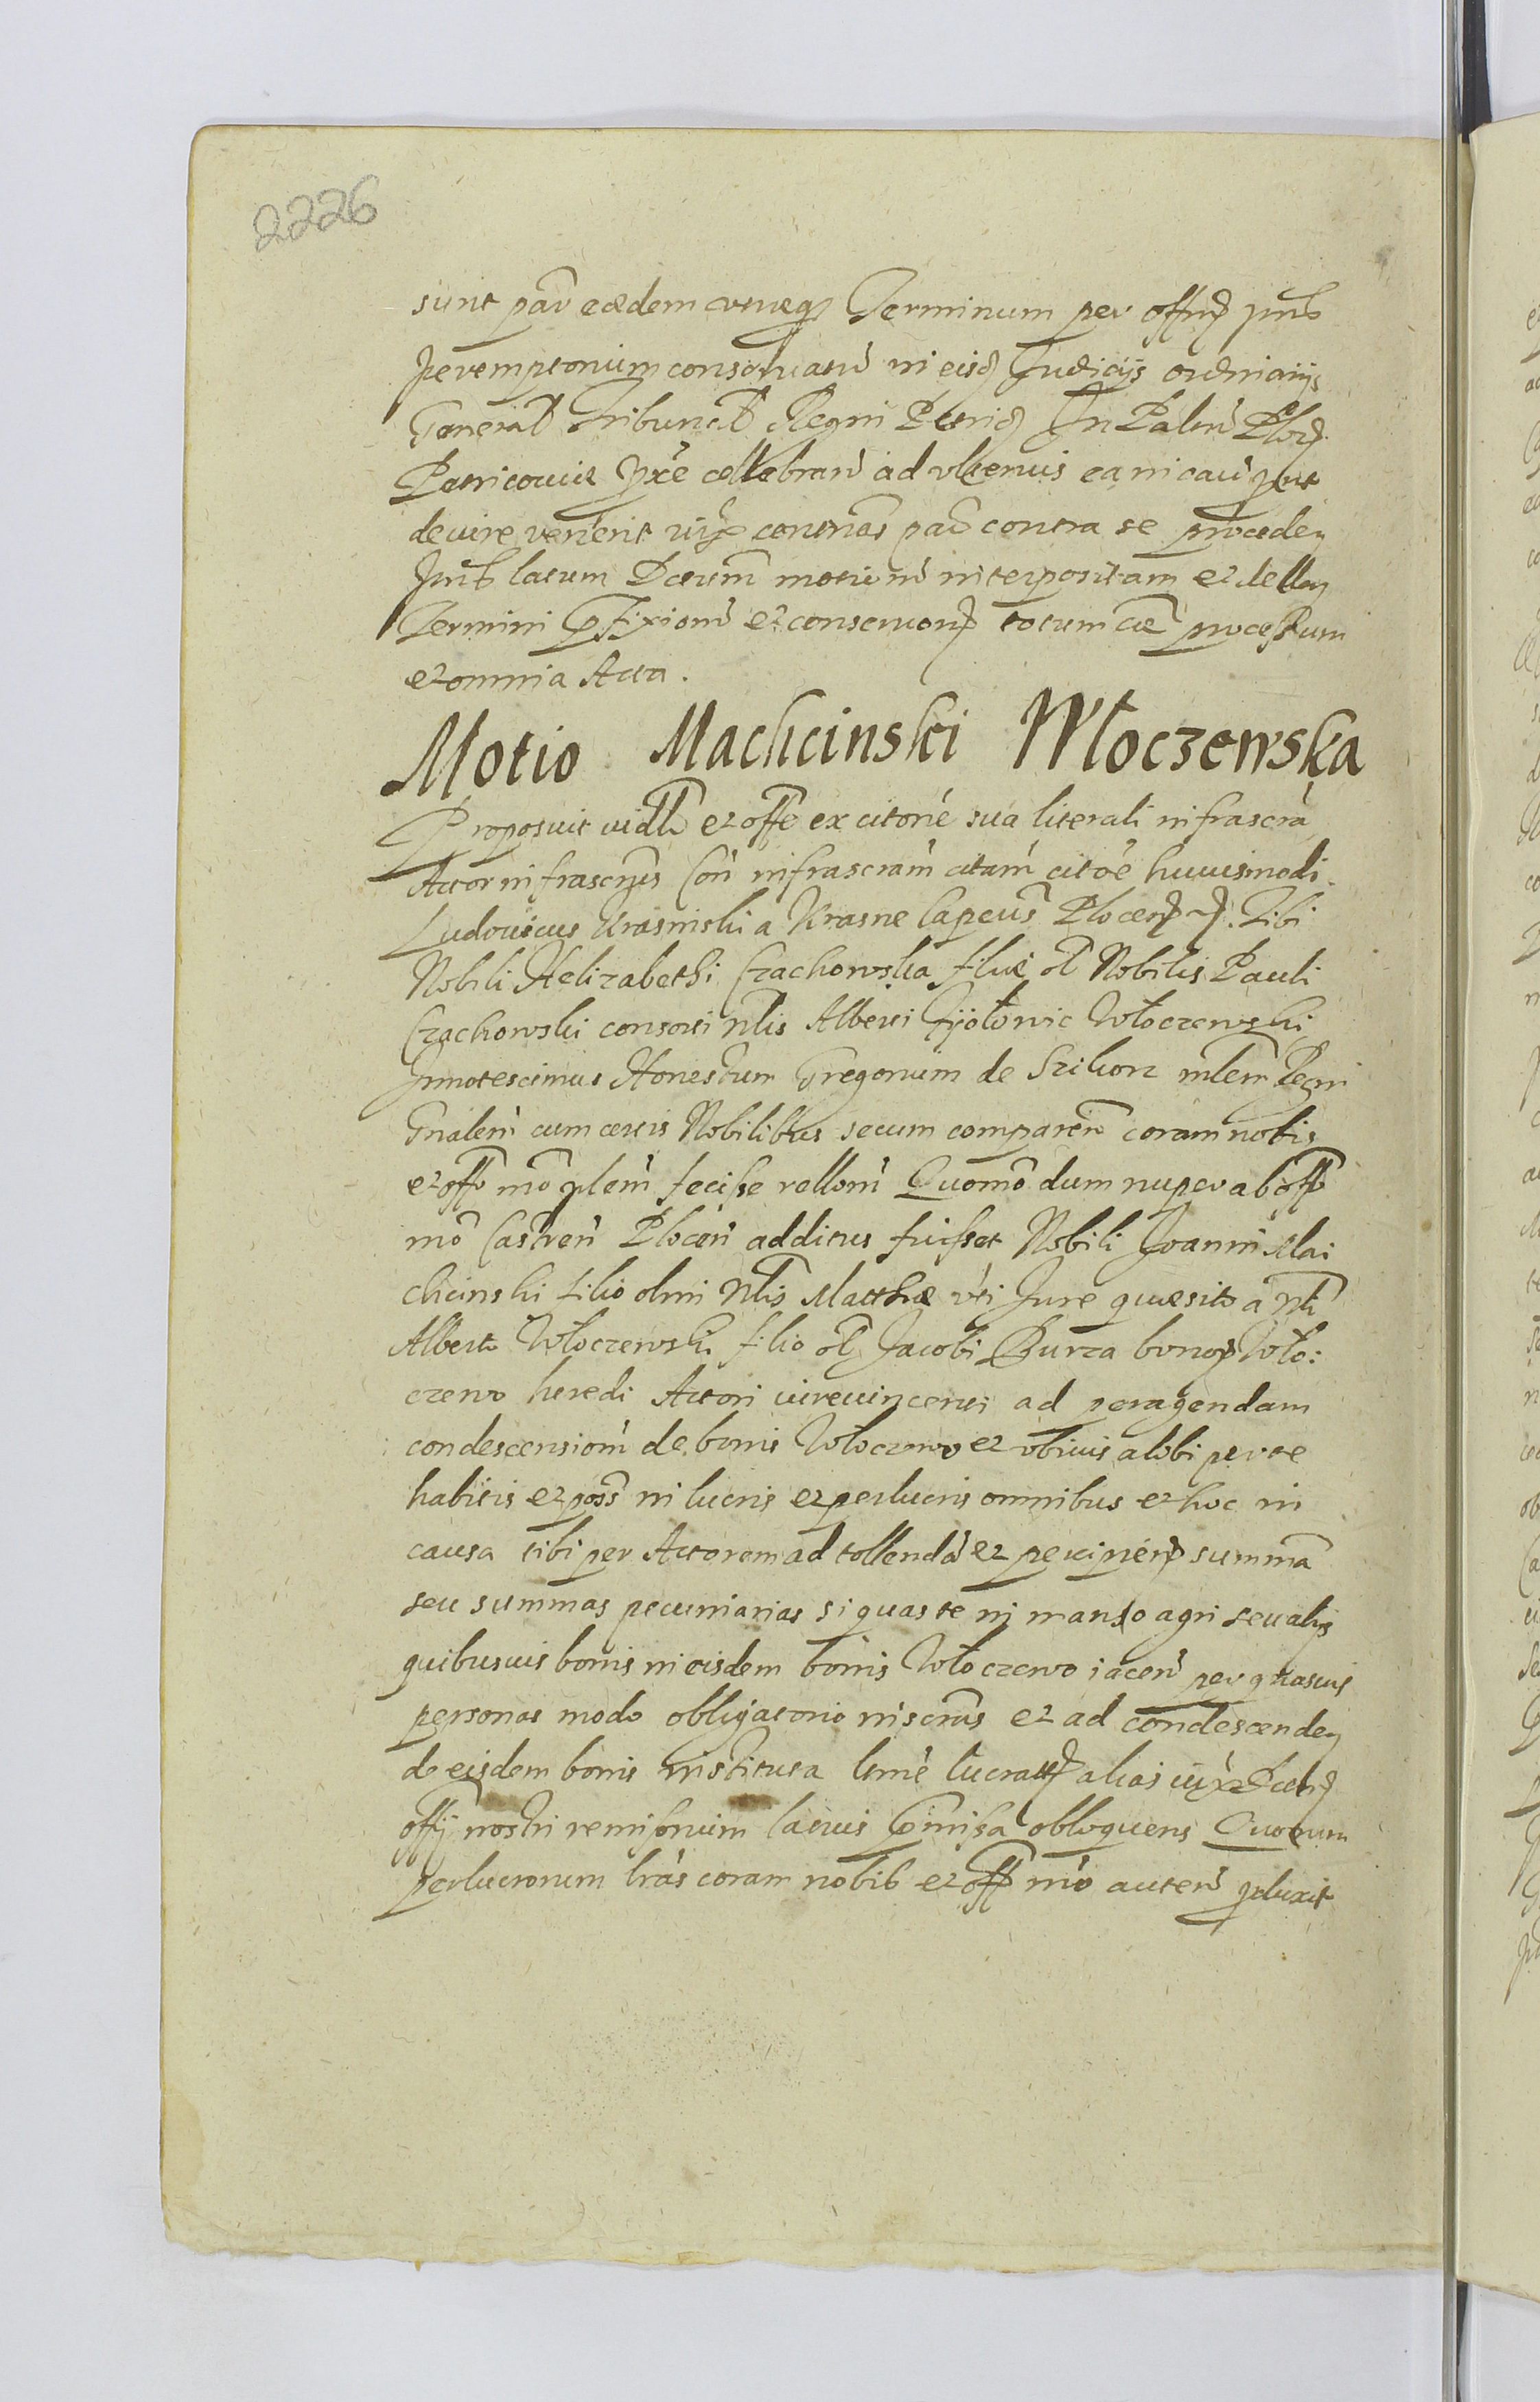 2226
sunt par eædem utræq Terminum per offm pns
peremptorium conservatu in eisd Judiciis ordinariis
General Tribunal Regni Petric In Palnu Ploc
Petricoviæ pxe celebran ad ulterius ea in cau prout
de iure venerit iux contrias par contra se proceden
pns latum Dcretum motionu interpositam et dellon
Termini pfixionu et conservonu totum cæ processum
et omnia Acta.
Motio Machcinski Włoczewska
Proposuit vidlt et offe ex citone sua literali infrascra
Actor infrascrpts Con infrascram citam citoe huiusmodi.
Ludovicus Krasinski a Krasne Capeus Plocen Tibi
Nobili Helizabethi Czachowska filiæ ol Nobilis Pauli
Czachowski consorti Nlis Alberti Fijołowic Włoczewski
Innotescimus Honestum Gregorium de Szikorz mlem Regni
Gnalem cum certis Nobilibus secum comparen coram nobis
et offo mo plem fecisse rellom Quomo dum nuper ab offo
mo Castren Plocen additus fuisset Nobili Joanni Mai
chcinski filio olim Nlis Matthiæ uti Jure quæsito a Nli
Alberto Włoczewski filio ol Jacobi Burza bonor Wło:
czewo heredi Actori iurevincenti ad peragendam
condescensionu de bonis Włoczewo et ubivis alibi per te
habitis et poss in lucris et perlucris omnibus et hoc in
causa tibi per Actorem ad tollenda et percipien summa
seu summas pecuniarias si quas te in manso agri seu aliis
quibusvis bonis in eisdem bonis Włoczewo iacen per quasvis
personas modo obligatorio inscrits et ad condescenden
de eisdem bonis instituta ltme lucratt alias iux Dceti
offy nostri remissorium latius pmissa obloquens Quorum
perlucrorum lras coram nobis et offo mo auten pduxit